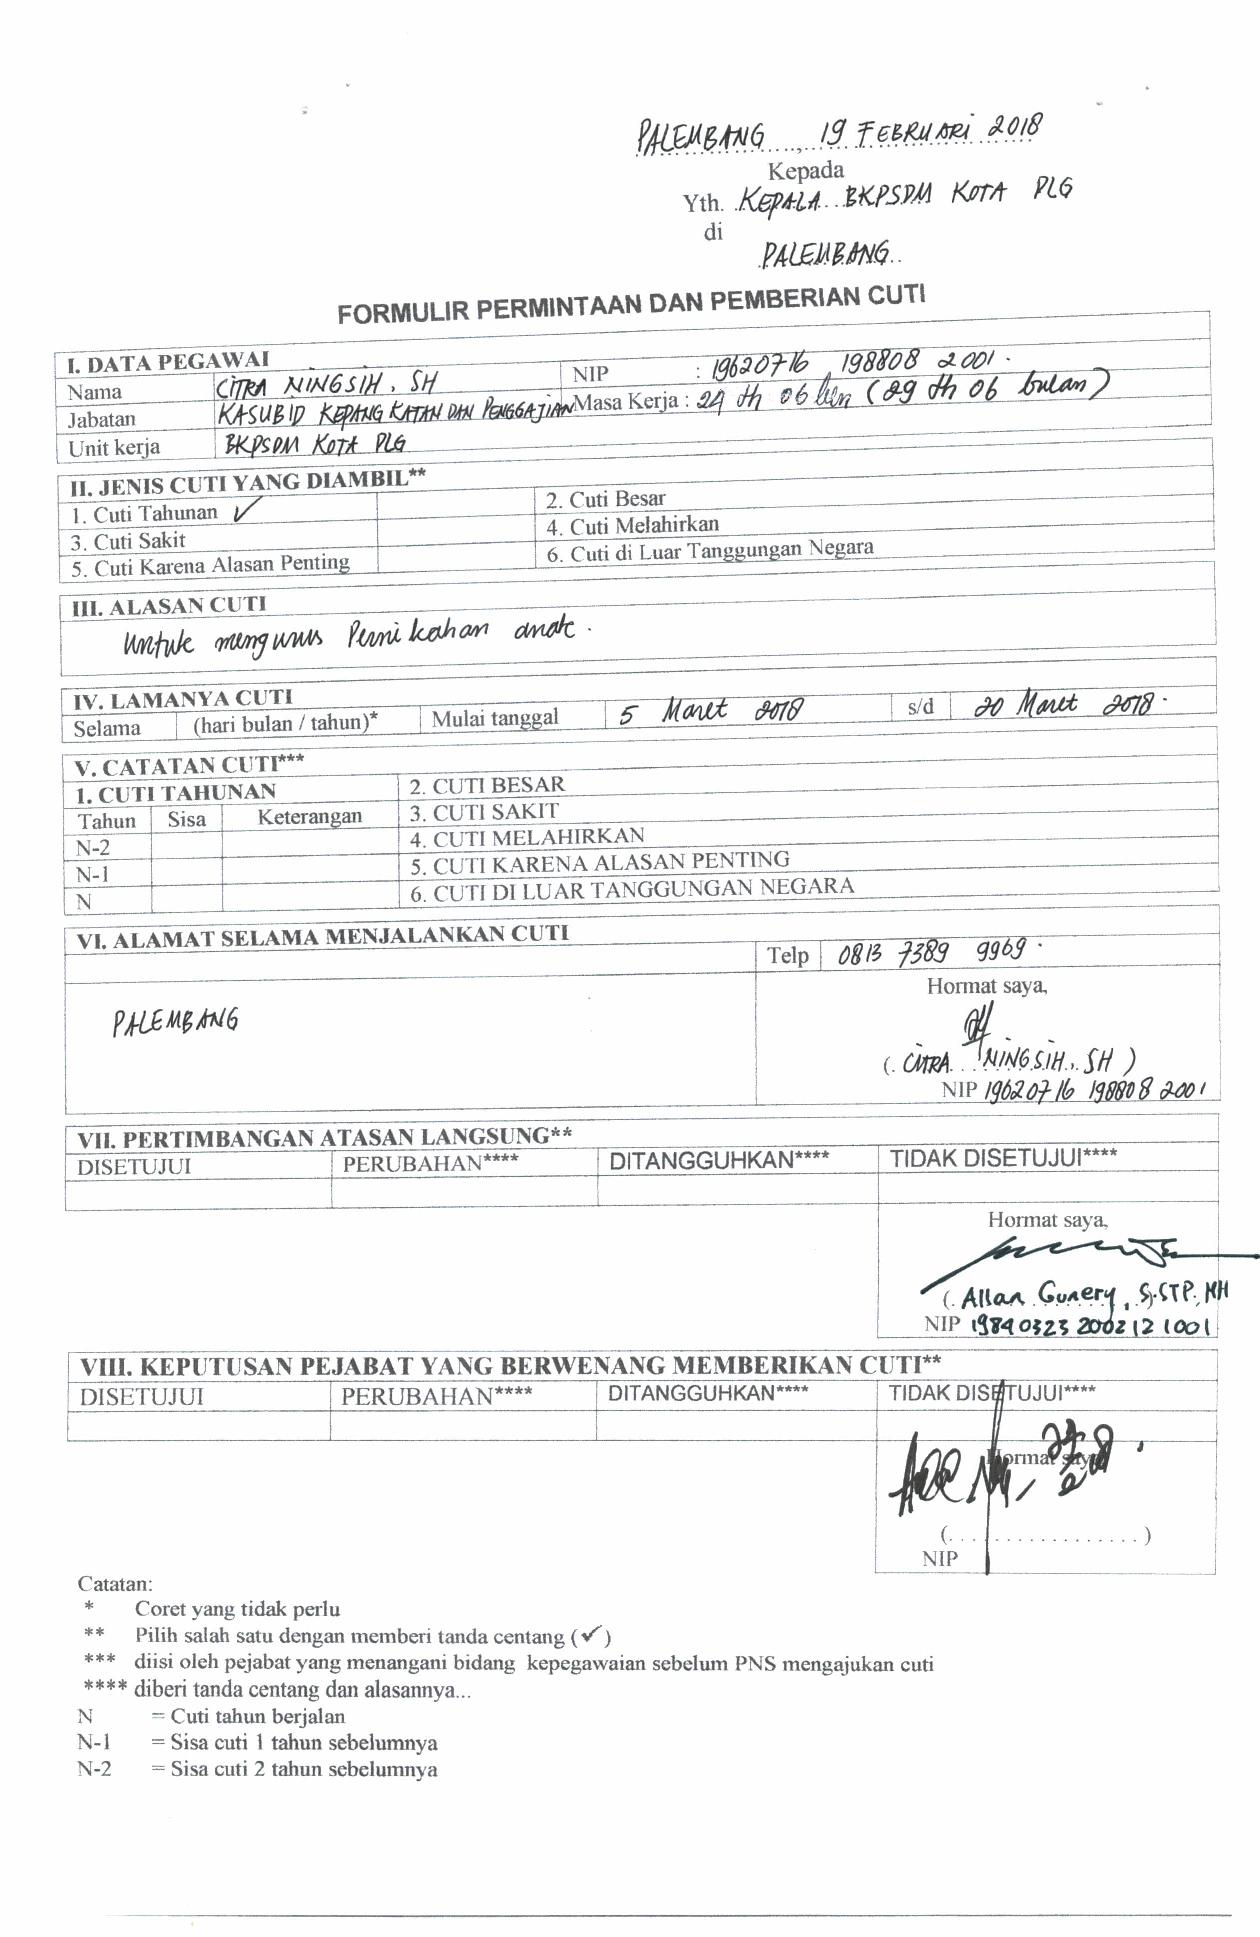 PALEMBANG, 19 FEBRUARI 2018
Kepada
Yth. KEPALA BKPSDM KOTA PLG
di
PALEMBANG
FORMULIR PERMINTAAN DAN PEMBERIAN CUTI
I. DATA PEGAWAI
Nama CITRA NINGSIH, SH NIP : 19620716 198808 2 001.
Jabatan KASUBID KEPANGKATAN DAN PENGGAJIAN Masa Kerja : 24 th 06 bln (29 th 06 bulan)
Unit kerja BKPSDM KOTA PLG
II. JENIS CUTI YANG DIAMBIL**
1. Cuti Tahunan ✓ 2. Cuti Besar
3. Cuti Sakit 4. Cuti Melahirkan
5. Cuti Karena Alasan Penting 6. Cuti di Luar Tanggungan Negara
III. ALASAN CUTI
Untuk mengurus Pernikahan anak.
IV. LAMANYA CUTI
Selama (hari bulan / tahun)* Mulai tanggal 5 Maret 2018 s/d 20 Maret 2018.
V. CATATAN CUTI***
1. CUTI TAHUNAN 2. CUTI BESAR
Tahun Sisa Keterangan 3. CUTI SAKIT
N-2 4. CUTI MELAHIRKAN
N-1 5. CUTI KARENA ALASAN PENTING
N 6. CUTI DI LUAR TANGGUNGAN NEGARA
VI. ALAMAT SELAMA MENJALANKAN CUTI
Telp 0813 7389 9969.
Hormat saya,
PALEMBANG
(. CITRA NINGSIH, SH )
NIP 19620716 198808 2001
VII. PERTIMBANGAN ATASAN LANGSUNG**
DISETUJUI PERUBAHAN**** DITANGGUHKAN**** TIDAK DISETUJUI****
Hormat saya,
(. Allan Gunery, S.STP, MH
NIP 19840323 200212 1001
VIII. KEPUTUSAN PEJABAT YANG BERWENANG MEMBERIKAN CUTI**
DISETUJUI PERUBAHAN**** DITANGGUHKAN**** TIDAK DISETUJUI****
Hormat saya
(. . . . . . . . . . . . . . . . . . )
NIP
Catatan:
* Coret yang tidak perlu
** Pilih salah satu dengan memberi tanda centang (✓)
*** diisi oleh pejabat yang menangani bidang kepegawaian sebelum PNS mengajukan cuti
**** diberi tanda centang dan alasannya...
N = Cuti tahun berjalan
N-1 = Sisa cuti 1 tahun sebelumnya
N-2 = Sisa cuti 2 tahun sebelumnya